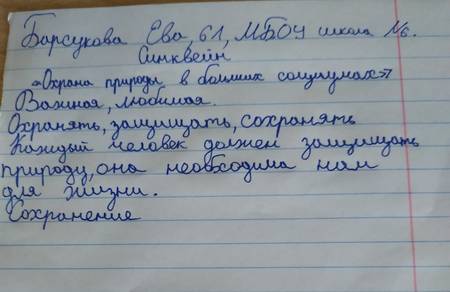 Барсукова Ева, 61, МБОУ школа №6.
Синквейн
«Охрана природы в больших социумах»
Важная, любимая.
Охранять, защищать, сохранять
Каждый человек должен защищать
природу, она необходима нам
для жизни.
Сохранение